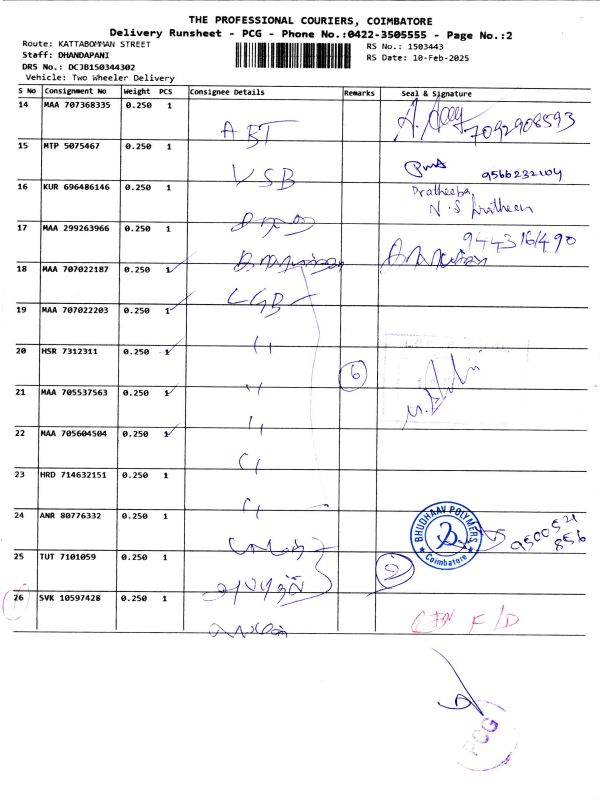 THE PROFESSIONAL COURIERS, COIMBATORE
Delivery Runsheet - PCG - Phone No.:0422-3505555 - Page No.:2
Route: KATTABOMMAN STREET
RS No.: 1503443
Staff: DHANDAPANI
RS Date: 10-Feb-2025
DRS No.: DCJB150344302
Vehicle: Two Wheeler Delivery
S No Consignment No Weight PCS Consignee Details Remarks Seal & Signature
14 MAA 707368335 0.250 1
ABT 7092908593
15 MTP 5075467 0.250 1
VSB 9566232104
16 KUR 696486146 0.250 1 Pratheeba
N.S
17 MAA 299263966 0.250 1
18 MAA 707022187 0.250 1
LGB
19 MAA 707022203 0.250 1
20 HSR 7312311 0.250 1
6
21 MAA 705537563 0.250 1
22 MAA 705604504 0.250 1
23 HRD 714632151 0.250 1
24 ANR 80776332 0.250 1 BHUDHAAV POLYMERS
Coimbatore
9500521
856
25 TUT 7101059 0.250 1
2
26 SVK 10597428 0.250 1
F/D
PCG